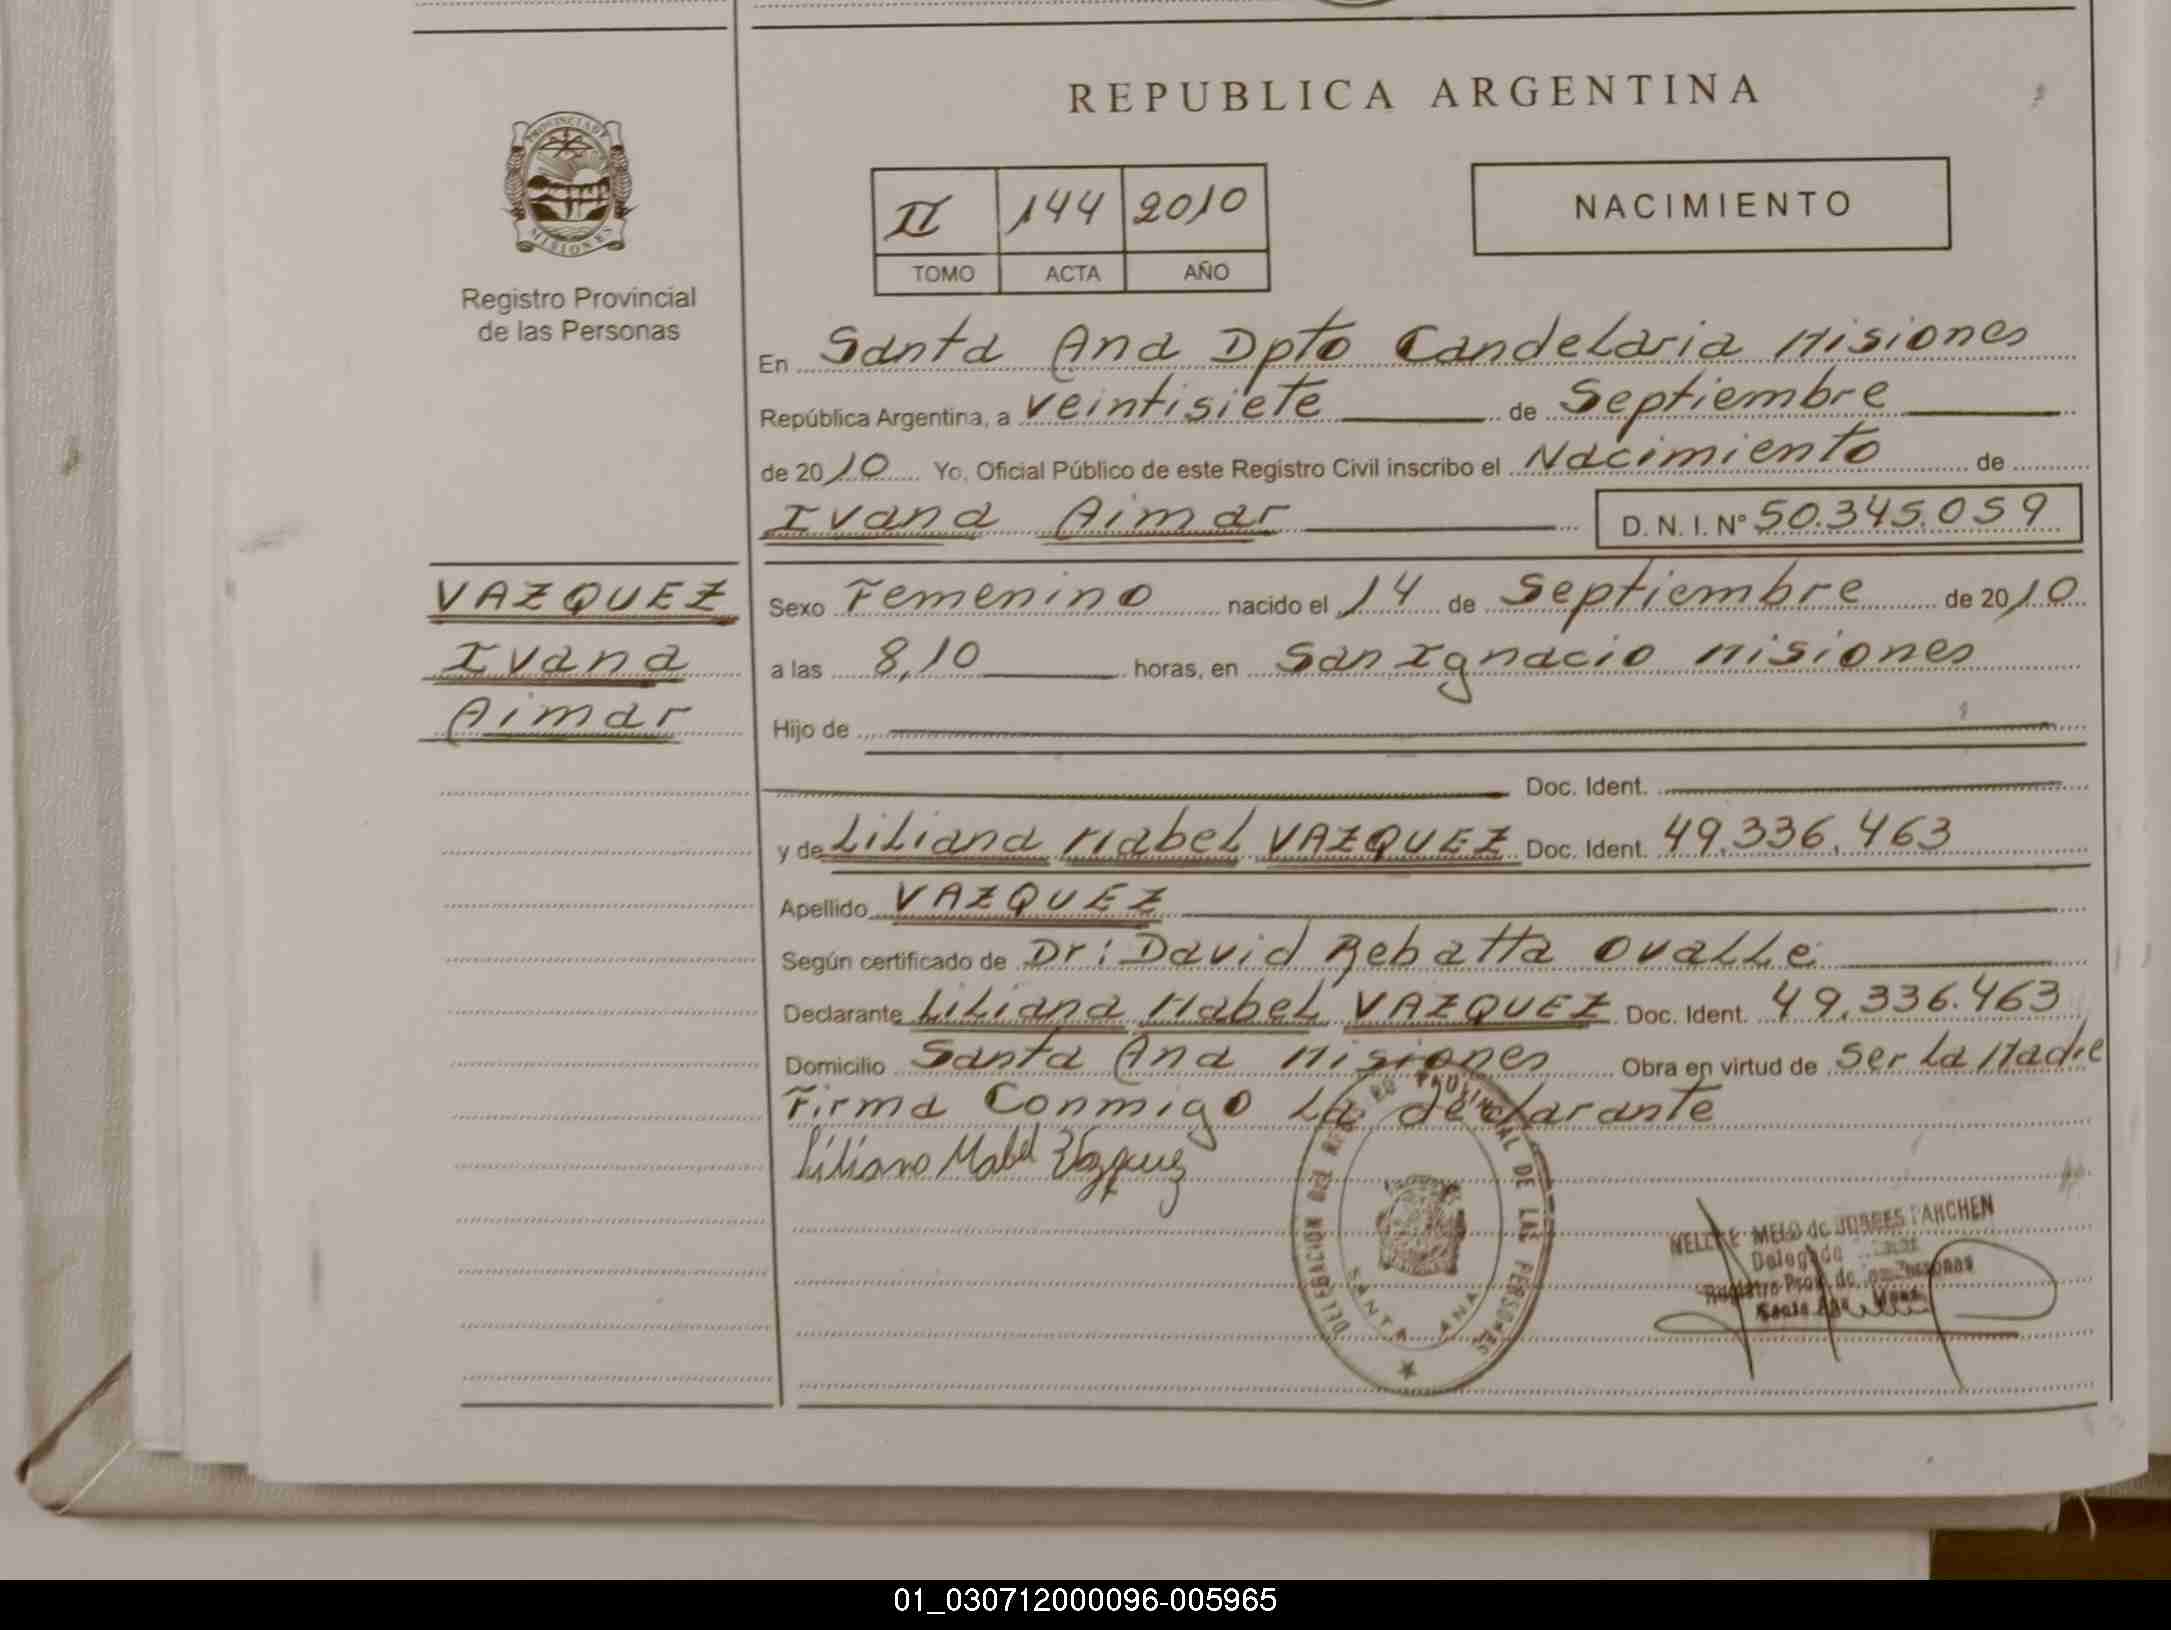 REPUBLICA ARGENTINA
PROVINCIA DE
MISIONES
Registro Provincial
de las Personas
II 144 2010
TOMO ACTA AÑO
NACIMIENTO
En Santa Ana Dpto Candelaria Misiones
República Argentina, a veintisiete de Septiembre
de 2010 Yo, Oficial Público de este Registro Civil inscribo el Nacimiento de
Ivana Aimar D. N. I. Nº 50.345.059
VAZQUEZ
Ivana
Aimar
Sexo Femenino nacido el 14 de Septiembre de 2010
a las 8,10 horas, en San Ignacio Misiones
Hijo de
Doc. Ident.
y de Liliana Mabel VAZQUEZ Doc. Ident. 49.336.463
Apellido VAZQUEZ
Según certificado de Dr: David Rebatta Ovalle
Declarante Liliana Mabel VAZQUEZ Doc. Ident. 49.336.463
Domicilio Santa Ana Misiones Obra en virtud de Ser La Madre
Firma Conmigo la declarante
Liliana Mabel Vazquez
DELEGACION DEL PROVINCIAL DE LAS PERSONAS
SANTA ANA
MELO de
Delegada
Registro Prov. de Personas
Santa Ana
01_030712000096-005965